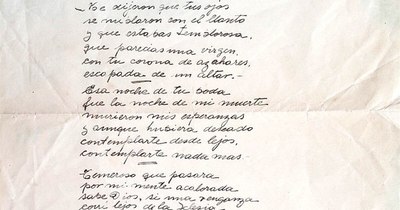 —Me dijeron que tus ojos
se nublaron con el llanto
y que estabas temblorosa,
que parecías una virgen,
con tu corona de azahares,
escapada de un altar.—
Esa noche de tu boda
fue la noche de mi muerte
murieron mis esperanzas
y aunque hubiera deseado
contemplarte desde lejos,
contemplarte nada mas—
Temeroso que pasara
por mi mente acalorada
sabe Dios, si una venganza
corrí lejos de la Iglesia